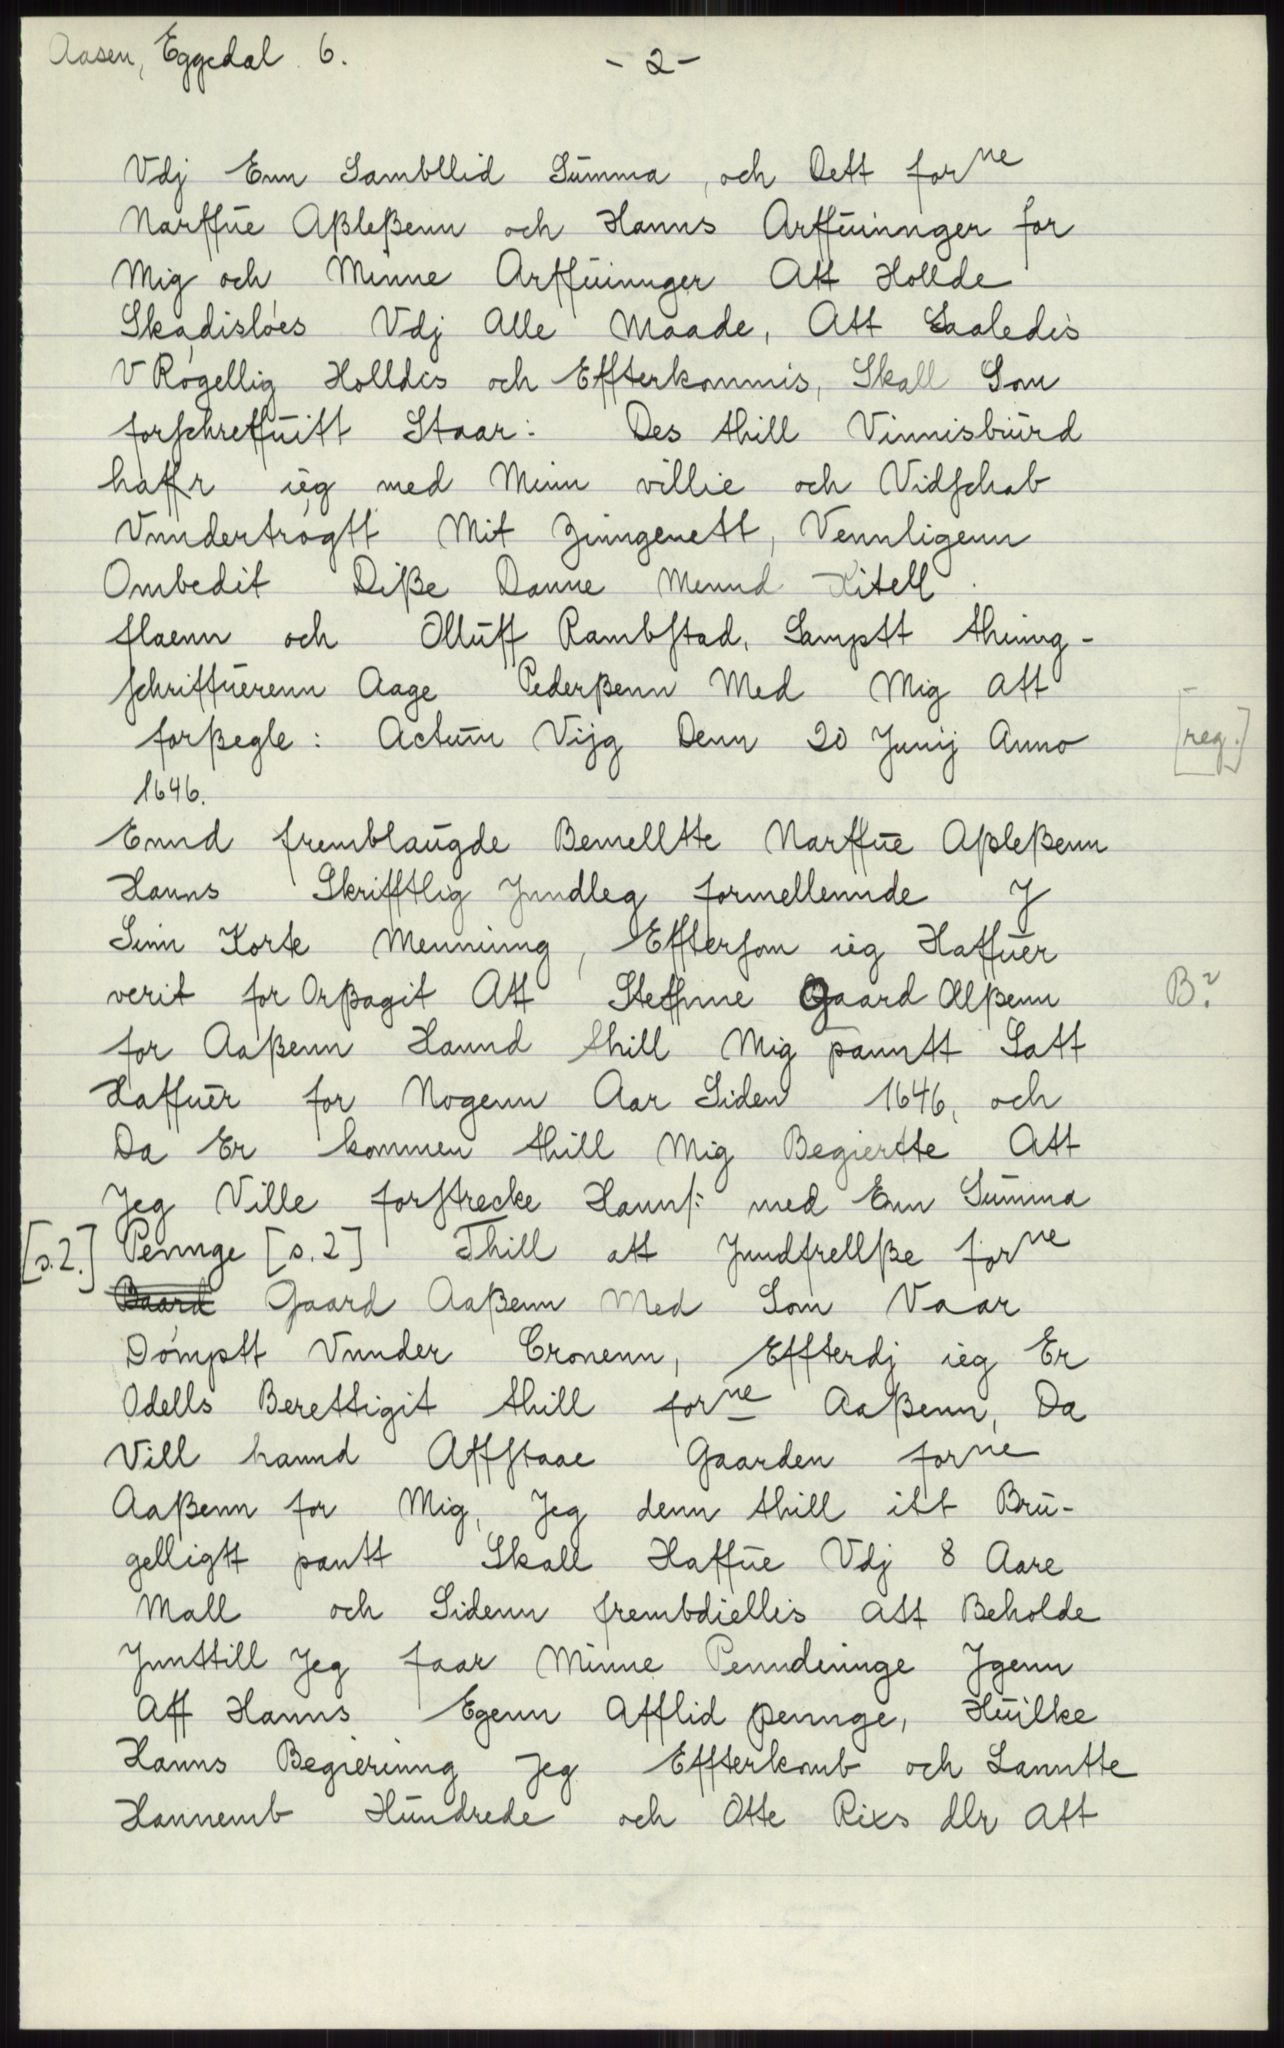 Aasen, Eggedal 6.
- 2 -
Vdj Enn Sambllid Sŭmma, och Dett for ne
Narffŭe Aßleßenn och Hanns Arffŭinnger for
Mig och Minne Arffŭinnger Att Hollde
Skadisløes Vdj Alle Maade, Att Saaledis
V Røgellig Holldis och Effterkommis, Skall Som
forschreffŭitt Staar: Des thill Vinnisbiŭrd
haffr ieg med Minn villie och Vidschab
Vnndertrøgtt Mit Zinngenett, Vennligenn
Ombedit Diße Danne Mennd Kitell
flaenn och Olluff Rambstad, Samptt thinng-
schriffŭerenn Aage Pederßenn Med Mig att
forßegle: Actŭm Vijg Denn 20 Junij Anno
[reg.]
1646.
Ennd fremblaŭgde Bemelltte Narffŭe Aßleßenn
Hanns Skrifftlig Jnndleg formellennde J
Sinn Korte Menning, Efftersom ieg Haffŭer
verit for Orßagit Att Steffnne Gaard Olßenn
B?
for Aaßenn Hannd thill Mig panntt Satt
Haffŭer for Nogenn Aar Siden 1646, och
Da Er kommen thill Mig Begiertte Att
Jeg Ville forstrecke Hanns: med Enn Sŭmma
[s.2.] Pennge [s.2] Thill att Jnndfrellße for ne
Baard Gaard Aaßenn Med Som Vaar
Dømptt Vnnder Cronenn, Effterdj ieg Er
Odells Berettigit thill for ne Aaßenn, Da
Vill hannd Affstaae Gaarden for ne
Aaßenn for Mig, Jeg denn thill itt Brŭ-
gelligtt pantt Skall Haffŭe Vdj 8 Aare
Mall och Sidenn frembdiellis att Beholde
Jnnttill Jeg faar Minne Penndeninge Jgenn
Aff Hanns Egenn Afflid pennge, Hŭilke
Hanns Begierinng Jeg Effterkomb och Lanntte
Hannemb Hŭndrede och Otte Rixs dlr Att